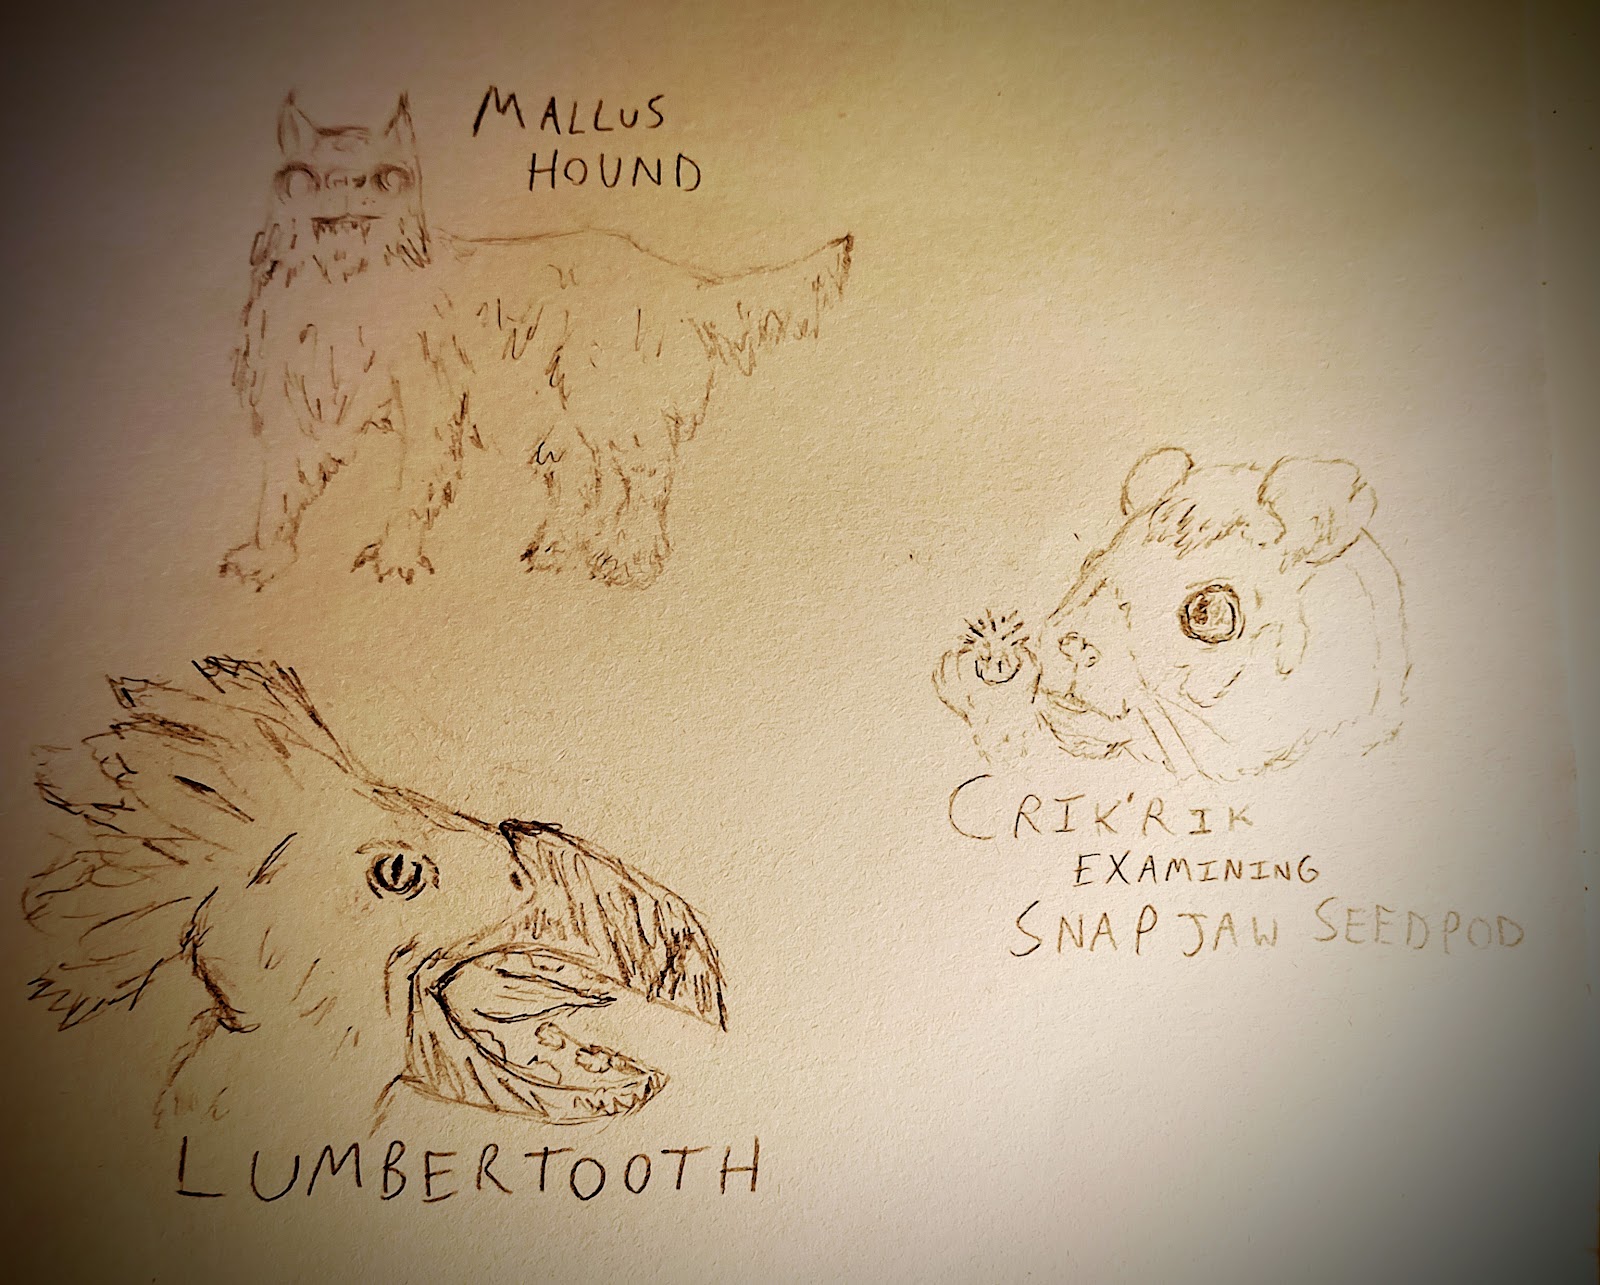 MALLUS
HOUND
CRIK'RIK
EXAMINING
SNAPJAW SEEDPOD
LUMBERTOOTH